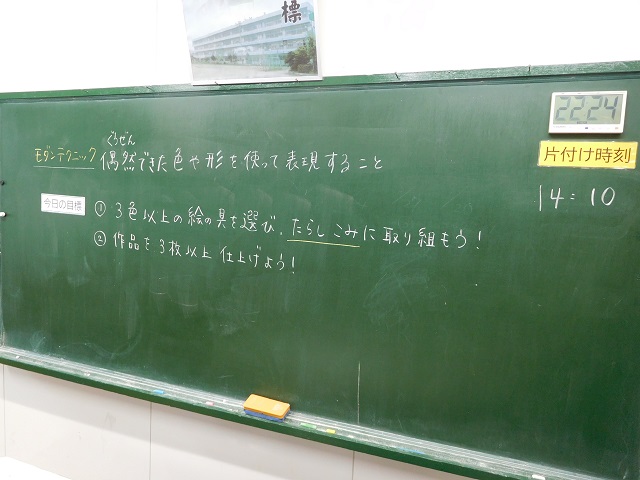 標
22:24
片付け時刻
14:10
ぐうぜん
モダンテクニック 偶然できた色や形を使って表現すること
今日の目標 ① 3色以上の絵の具を選び、たらしこみに取り組もう!
② 作品を3枚以上仕上げよう!